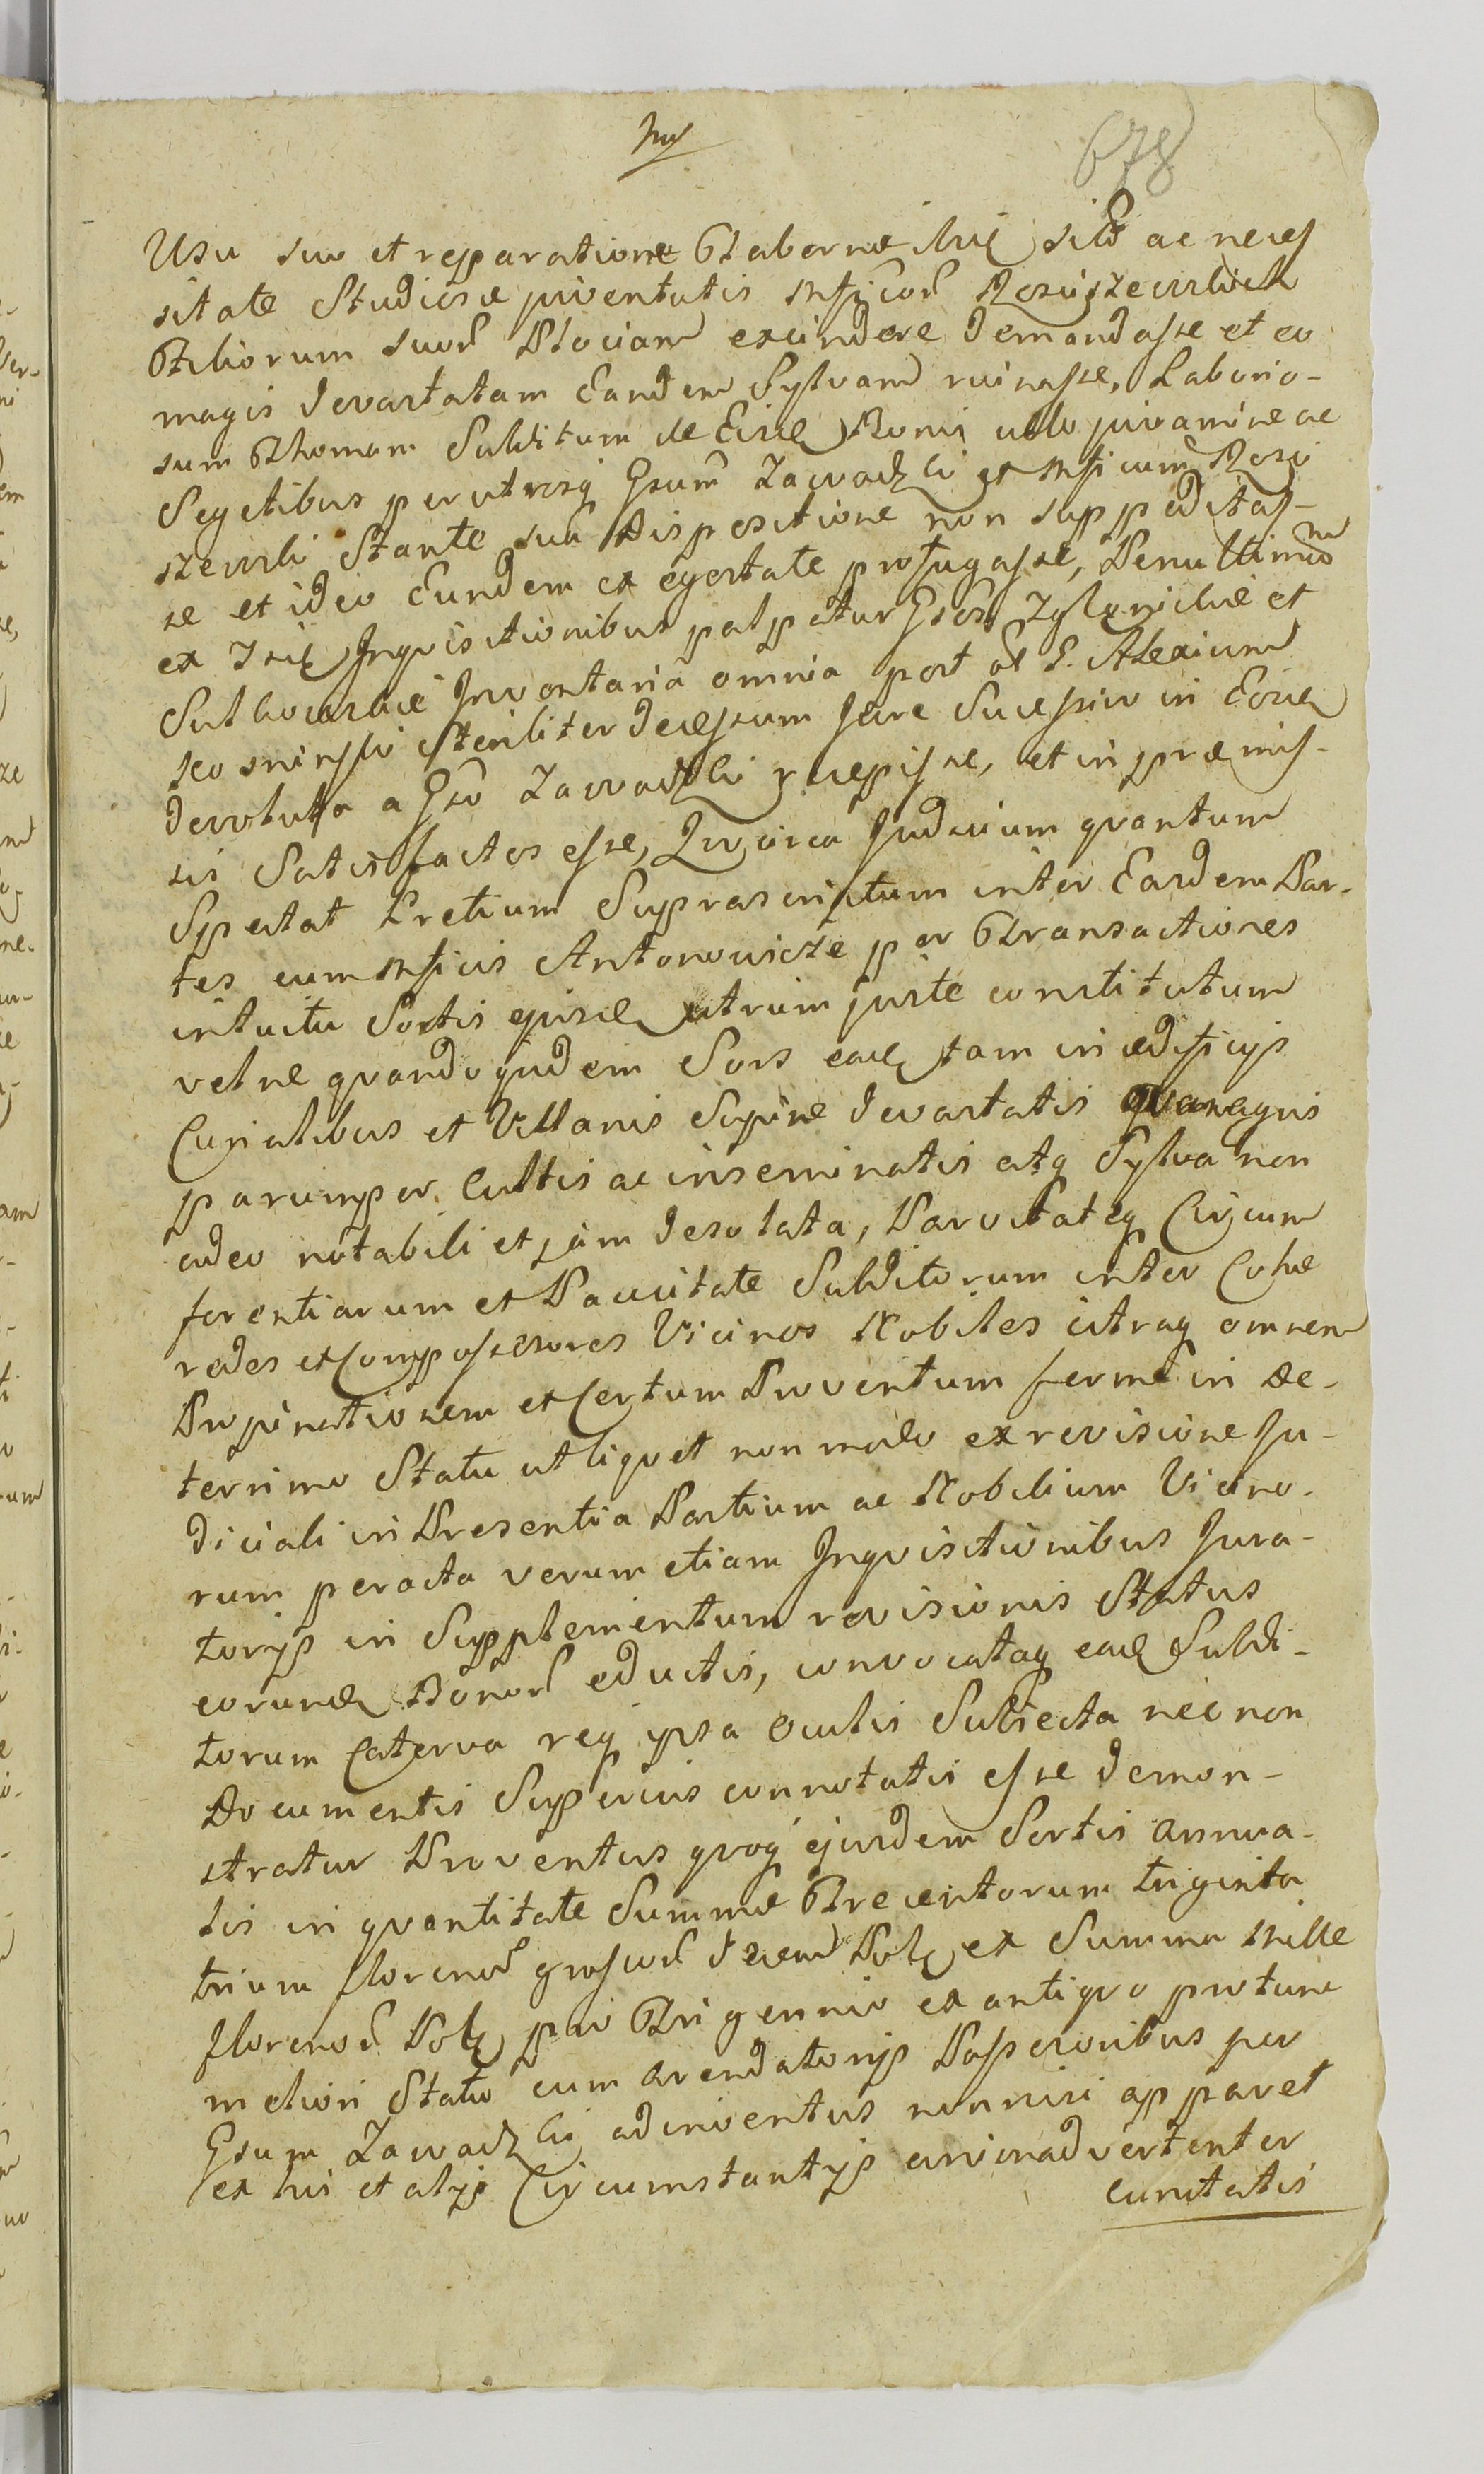 678
Usu suo et reparatione Tabernæ hui sitæ ac neces
sitate Studiosæ juventutis Mficor Rosciszewskich
Filiorum suor Plociam excindere demandasse et eo
magis devastatam Eandem Sylvam ruinasse, Laborio-
sum Thomam Subditum de Eisd Bonis ullo juvamine ac
Segetibus per utrosq Gsum Zawadzki et Mficum Rosci
szewski Stante sua Dispositione non suppeditas-
se et ideo Eundem ex egestate profugasse, Penultimo
ex Iisd Inqvisitionibus palpatur Gsos Zglenickie et
Sutkowskie Inventaria omnia post ol S.
steriliter decessum Jure Sucessivo in Eosd
devoluta a Gso Zawadzki recepisse, et in præmis-
sis Satisfactos esse, Qvocirca Judicium qvantum
Spectat Pretium Suprascriptum inter Easdem Par-
tes cum Mficis Antonowicze per Transactiones
intuitu Sortis ejusd utrum juste constitutum
vel ne qvandoqvidem Sors ead tam in ædificijs
Curialibus et Villanis Supine devastatis qvam agris
parumper Cultis ac inseminatis atq Sylva non
adeo notabili et jam desolata, Parvitateq Circum
ferentiarum et Paucitate Subditorum inter Cohæ
redes et Compossessores Vicinos Nobiles citraq omnem
Propinationem et Certum Proventum ferme in De-
terrimo Statu ut liqvet non modo ex revisione Ju-
diciali in Presentia Partium ac Nobilium Vicino-
rum peracta verum etiam Inqvisitionibus Jura-
torijs in Supplementum revisionis Status
eorund Bonor eductis, convocataq ead Subdi-
torum Caterva req ipsa Oculis Subjecta nec non
Documentis Superius connotatis esse demon-
stratur Proventus qvoq ejusdem Sortis annua-
lis in qvantitate Summæ Trecentorum triginta
trium florenor grossor decem Pol ex Summa Mille
florenor Pol pro Triennio ex antiqvo pro tunc
meliori Statu cum arendatorijs Possessoribus per
Gsum Zawadzki adinventus nonnisi apparet
ex his et alijs Circumstantijs animadvertenter
cunctatis